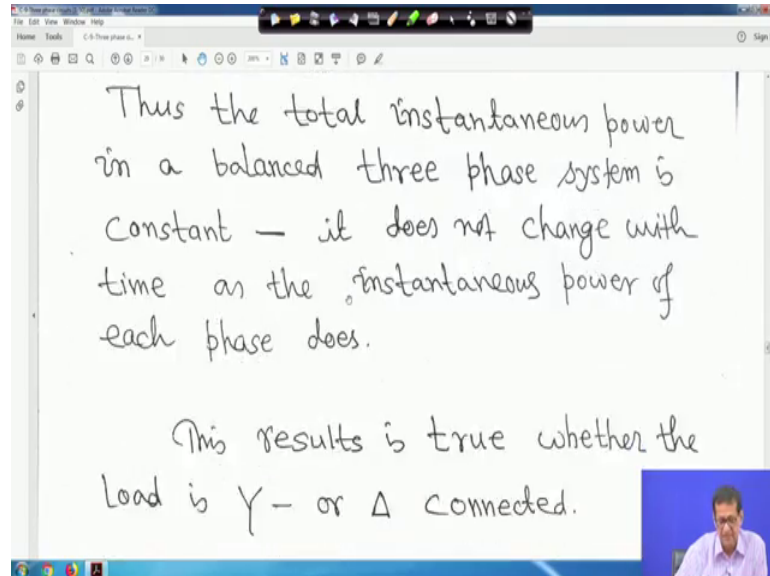 File Edit View Window Help
Home Tools C-5-Three phase c...
Sign
Thus the total instantaneous power
in a balanced three phase system is
constant — it does not change with
time as the instantaneous power of
each phase does.
This results is true whether the
Load is Y- or Δ connected.